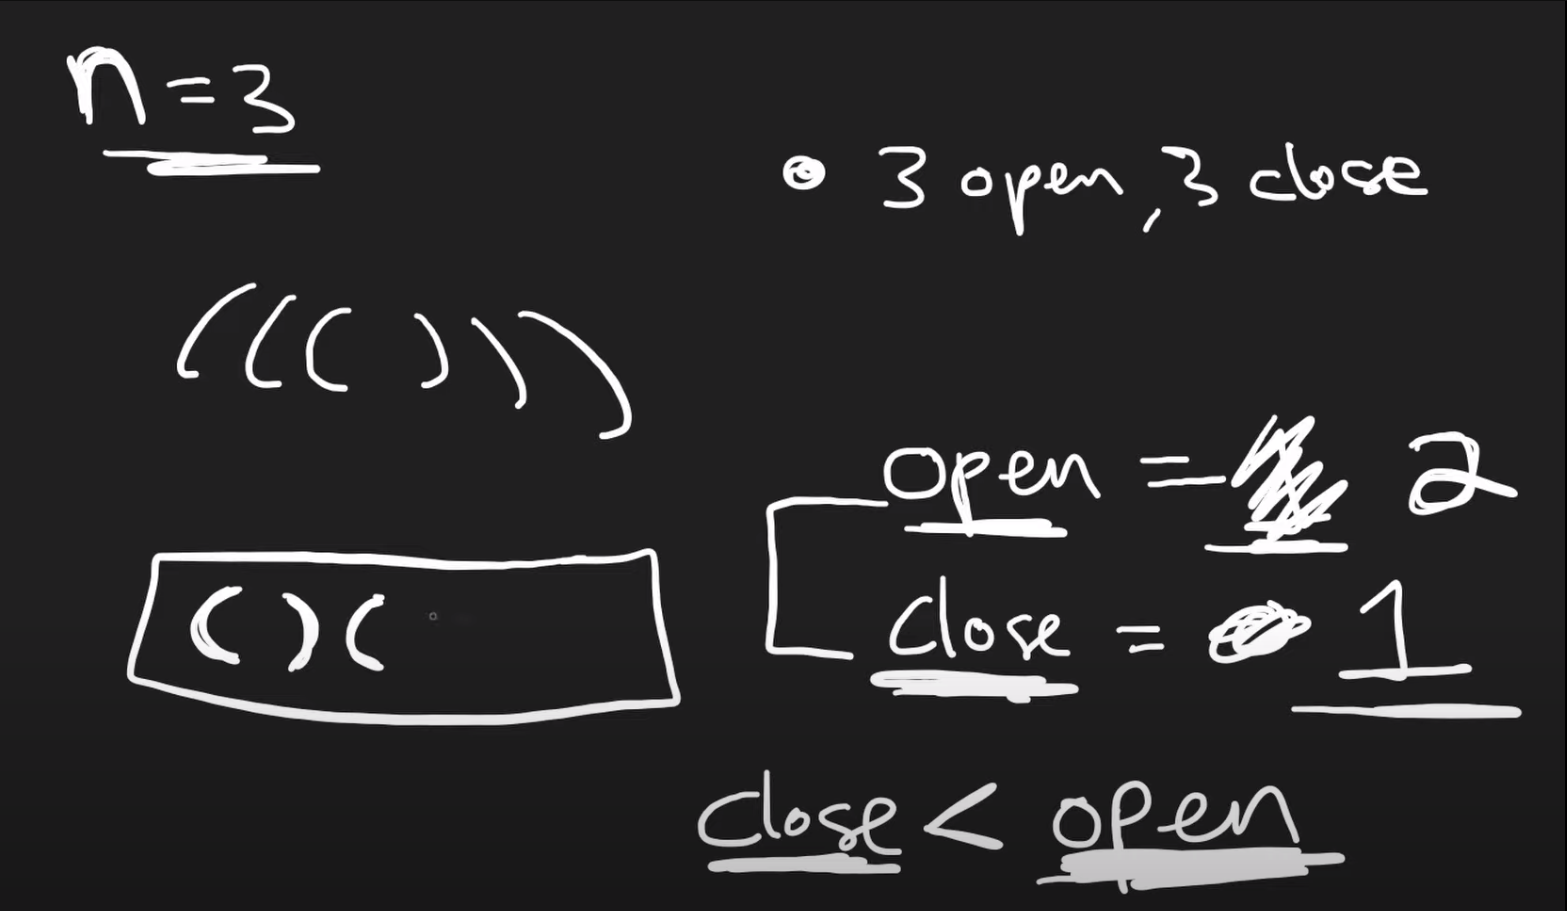 n=3
• 3 open, 3 close
((()))
open = 2
()(
close = 1
close < open